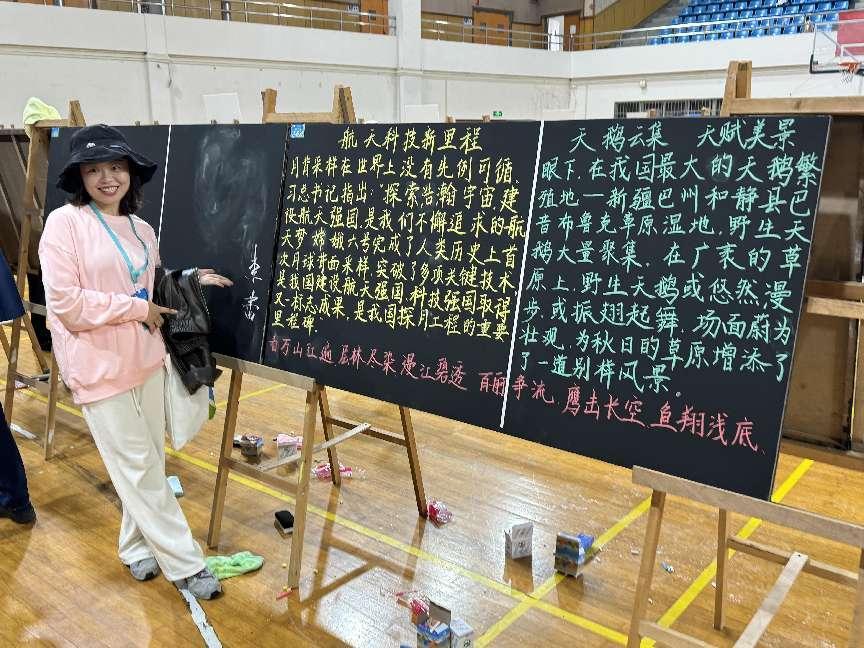 航天科技新里程
月背采样在世界上没有先例可循,
习总书记指出:“探索浩瀚宇宙,建
设航天强国,是我们不懈追求的航
天梦”嫦娥六号完成了人类历史上首
次月球背面采样,突破了多项关键技术,
是我国建设航天强国,科技强国取得
又一标志成果,是我国探月工程的重要
里程碑。
天鹅云集 天赋美景
眼下,在我国最大的天鹅繁
殖地—新疆巴州和静县巴
音布鲁克草原湿地,野生天
鹅大量聚集,在广袤的草
原上,野生天鹅或悠然漫
步,或振翅起舞,场面蔚为
壮观,为秋日的草原增添了
了一道别样风景。
看万山红遍 层林尽染 漫江碧透 百舸争流 鹰击长空 鱼翔浅底